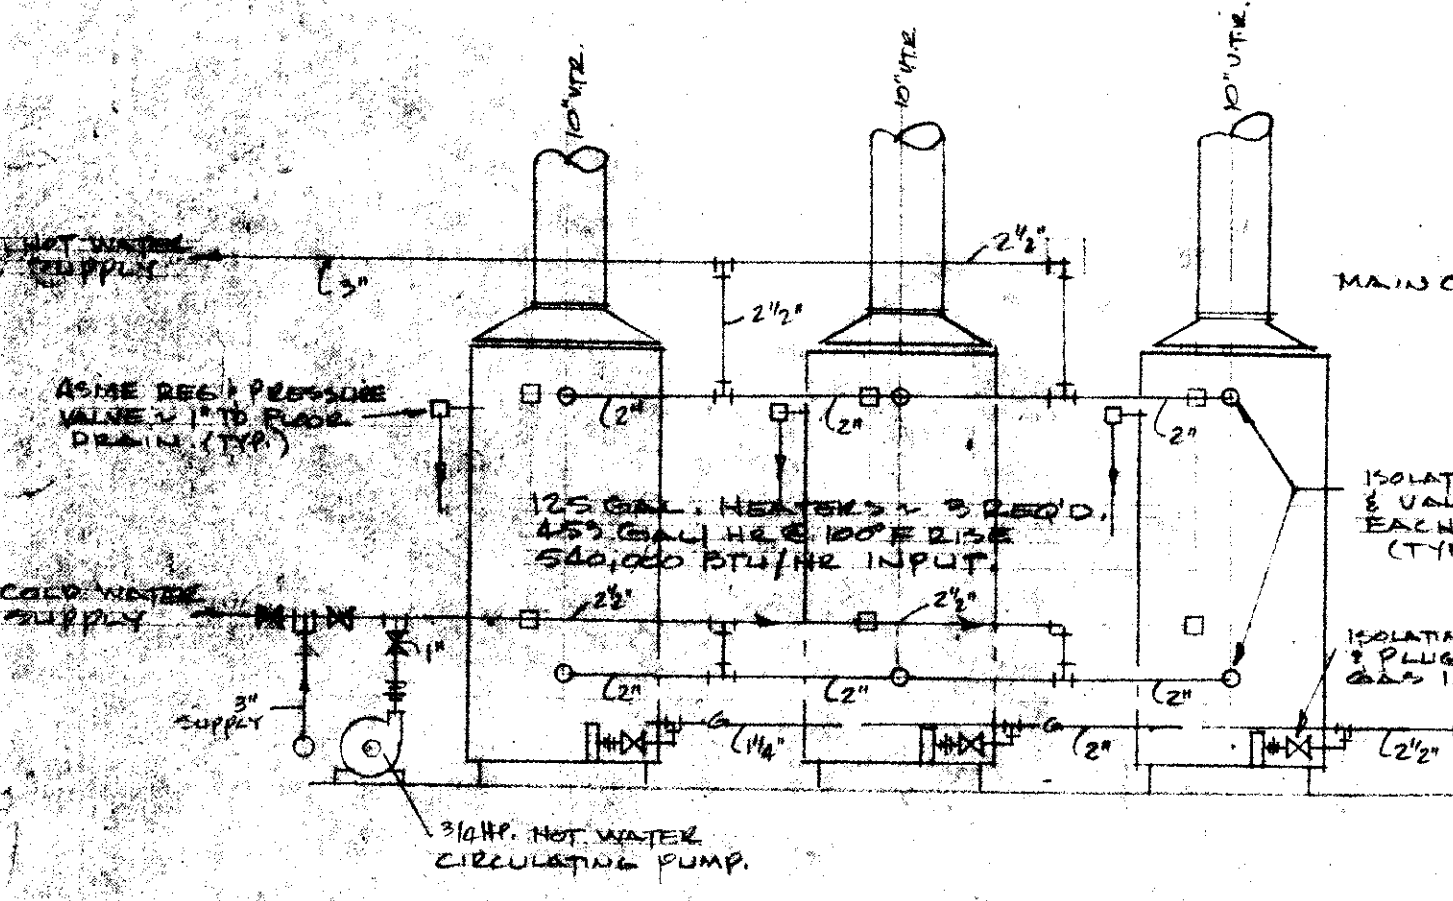 10" V.T.R.
10" V.T.R.
10" V.T.R.
HOT WATER
SUPPLY
3"
2½"
2½"
MAIN
ASME REG & PRESSURE
VALVE ~ 1" TO FLOOR
DRAIN. (TYP.)
2"
2"
2"
125 GAL. HEATERS ~ 3 REQ'D.
453 GAL/HR @ 100°F RISE
540,000 BTU/HR INPUT.
ISOLAT
& VAL
EACH
(TYP
COLD WATER
SUPPLY
2½"
2½"
1"
2"
2"
2"
ISOLATI
& PLUG
GAS
3"
SUPPLY
G
1¼"
G
2"
2½"
3/4 HP. HOT WATER
CIRCULATING PUMP.